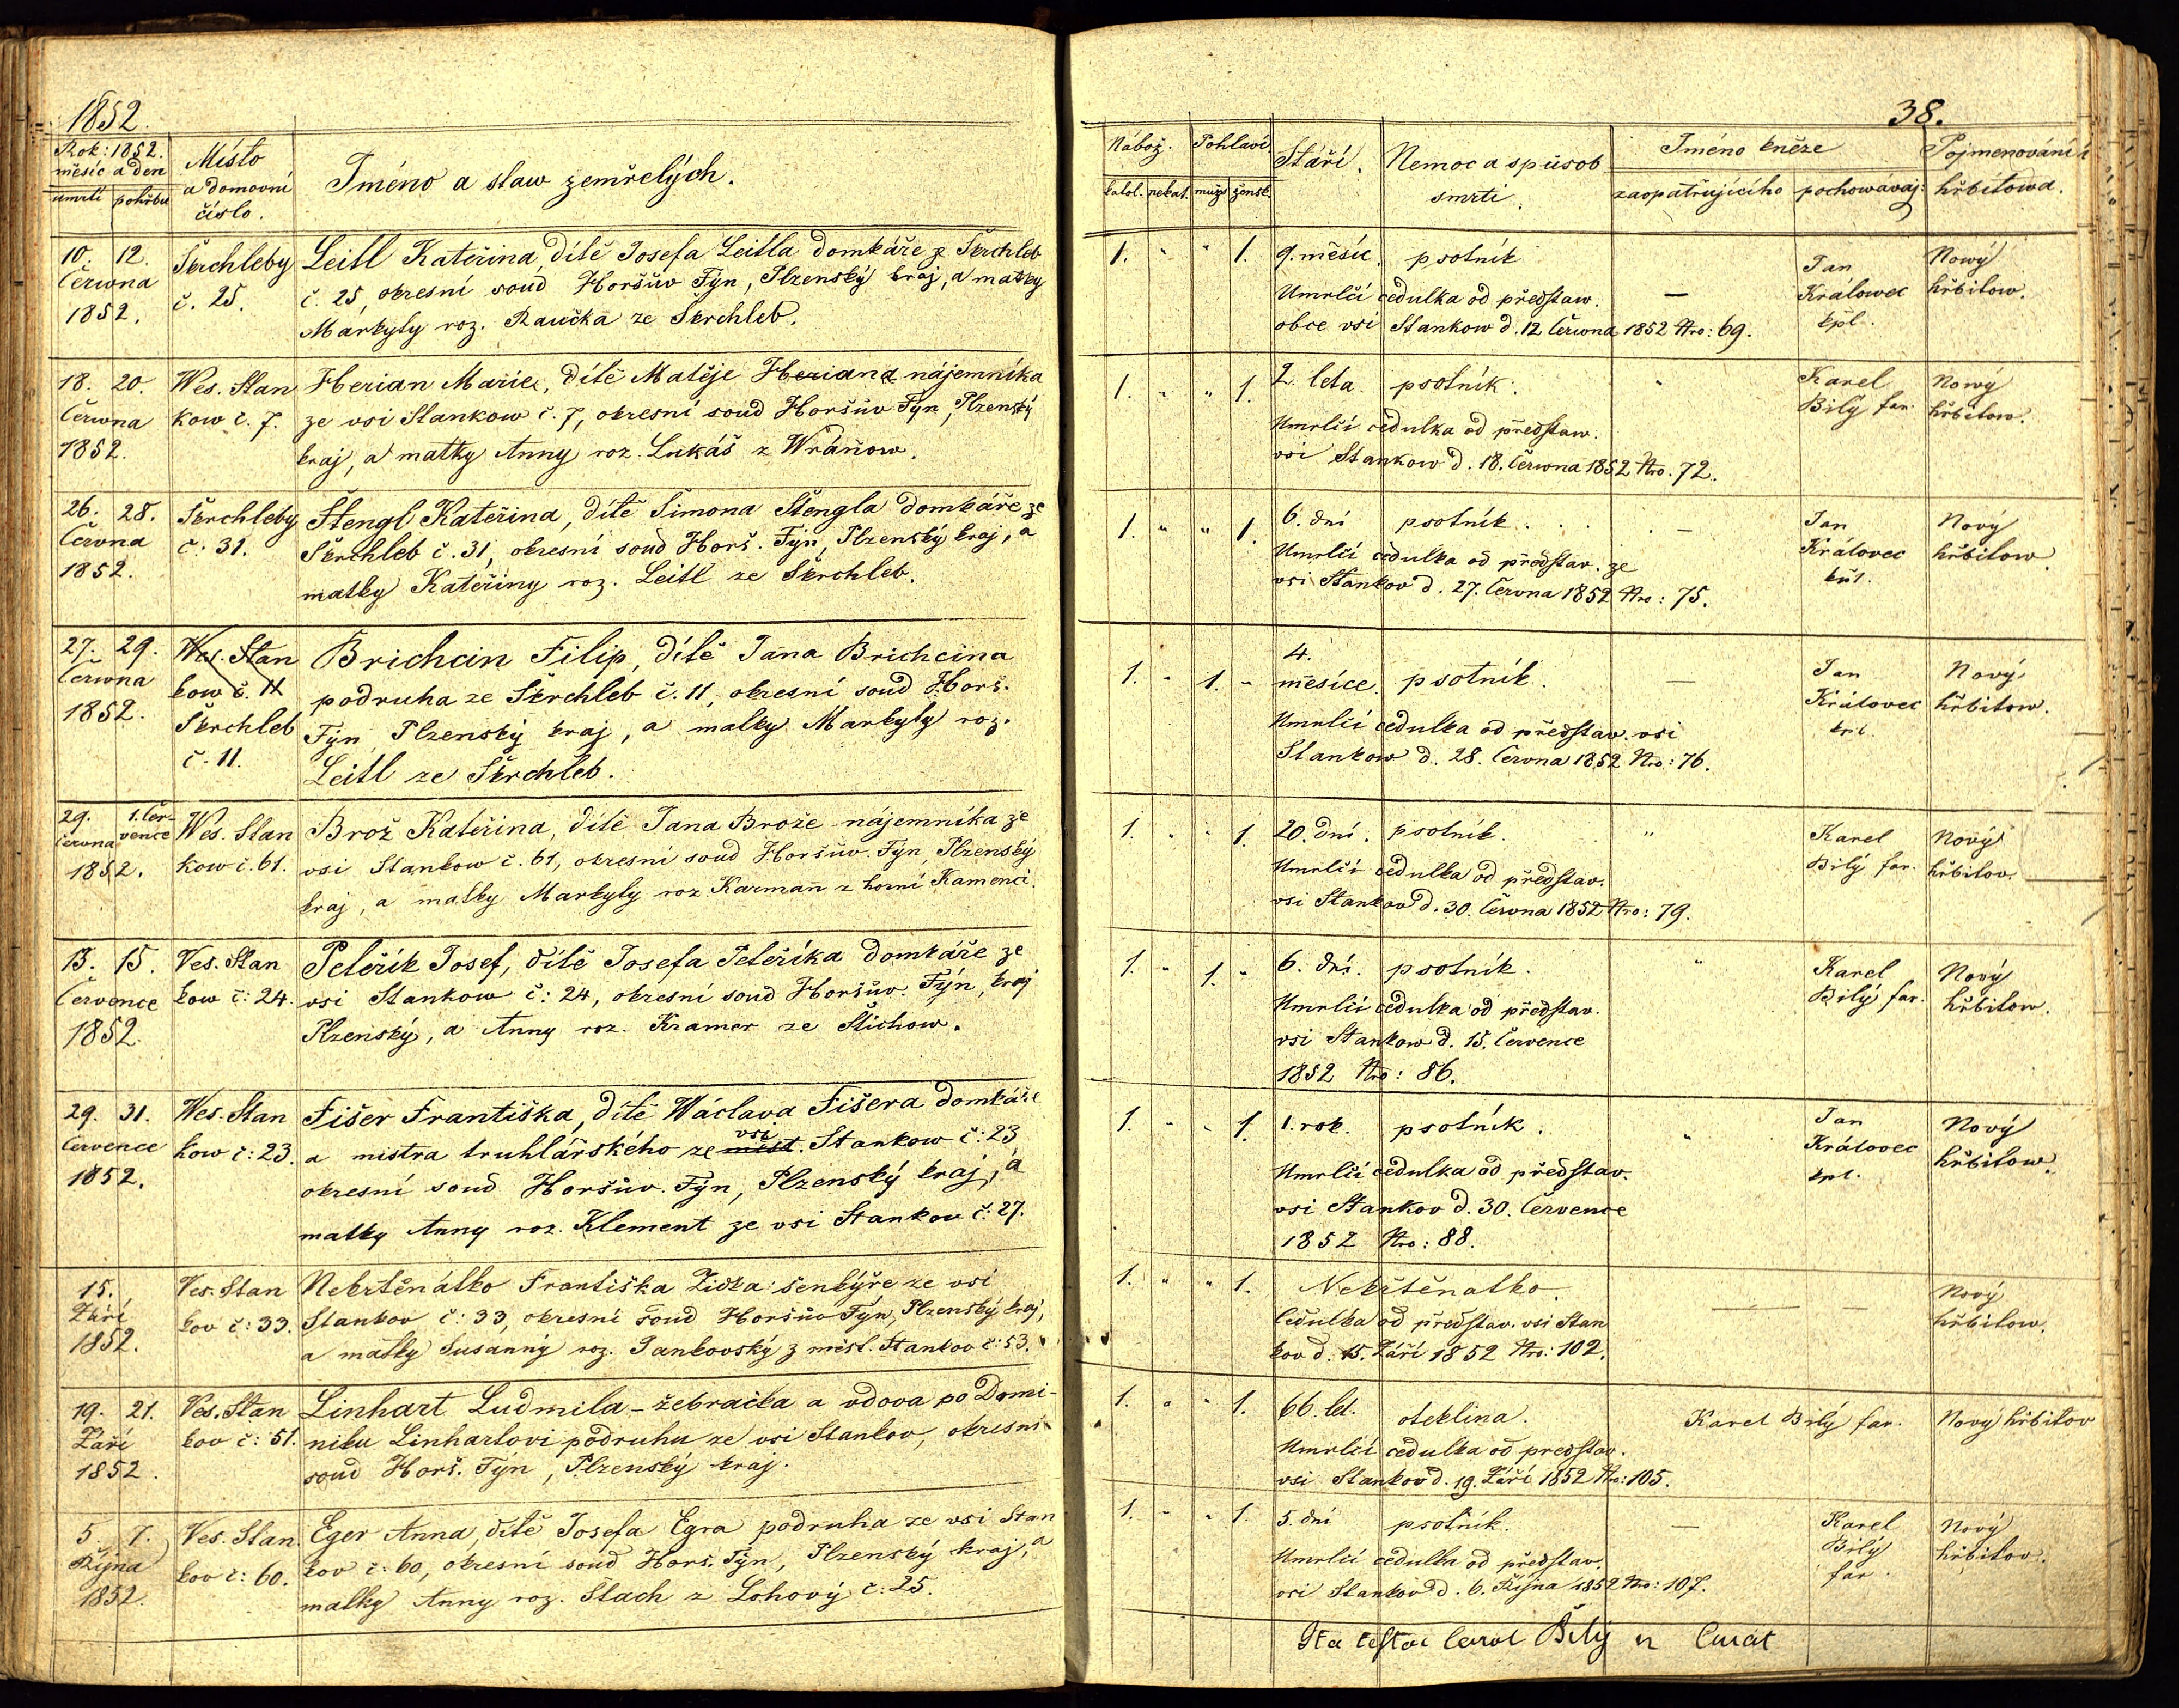 1852.
38.
Rok: 1852.
měsíc a den
úmrtí pohřbu
Místo
a domovní
číslo.
Jméno a staw zemřelých.
Nábož.
katol. nekat.
Pohlaví
muž žensk.
Stáří.
Nemoc a spůsob
smrti.
Jméno kněze
zaopatřujícího pochowávaj:
Pojmenování
hřbitowa.
10. 12.
Června
1852.
Škrchleby
č. 25.
Leitl Kateřina, dítě Josefa Leitla domkáře z Škrchleb
č. 25, okresní soud Horšůw Týn, Plzenský kraj, a matky
Márkyty roz. Raučka ze Škrchleb.
1. " " 1. 9. měsíc. psotník
Umrlčí cedulka od představ. —
obce vsi Stankow d. 12 Června 1852 Nro: 69.
Jan
Kralowec
kpl.
Nowý
hřbitow.
18. 20.
Června
1852.
Wes. Stan
kow č. 7.
Herian Marie, dítě Matěje Heriana nájemníka
ze vsi Stankow č. 7, okresní soud Horšůw Týn, Plzenský
kraj, a matky Anny roz. Lukáš z Wráňow.
1. " " 1. 2 leta psotník. "
Umrlčí cedulka od představ.
vsi Stankow d. 18. Června 1852 Nro. 72.
Karel
Bílý far.
Nowý
hřbitow.
26. 28.
Června
1852.
Škrchleby
č: 31.
Štengl Kateřina, dítě Šimona Štengla domkáře ze
Škrchleb č. 31, okresní soud Horš. Týn, Plzenský kraj, a
matky Kateřiny roz. Leitl ze Škrchleb.
1. " " 1. 6. dní psotník. —
Umrlčí cedulka od představ. ze
vsi Stankov d. 27. Června 1852 Nro: 75.
Jan
Královec
kpl.
Nový
hřbitow.
27. 29.
Června
1852.
Wes. Stan
kow č. 11
Škrchleb
č. 11.
Brichcin Filip, dítě Jana Brichcina
podruha ze Škrchleb č. 11, okresní soud Horš.
Týn Plzenský kraj, a matky Markyty roz.
Leitl ze Škrchleb.
1. " 1. " 4.
měsíce. psotník. —
Umrlčí cedulka od představ. vsi
Stankow d. 28. Června 1852 Nro: 76.
Jan
Královec
kpl.
Nový
hřbitow.
29. 1. Čer-
června vence
1852.
Wes. Stan
kow č. 61.
Brož Kateřina, dítě Jana Brože nájemníka ze
vsi Stankow č. 61, okresní soud Horšůw. Týn, Plzenský
kraj, a matky Markyty roz. Karmann z horní Kamenci.
1. " " 1. 20. dní. psotník. "
Umrlčí cedulka od představ.
vsi Stankov d. 30. Června 1852 Nro: 79.
Karel
Bílý far.
Nový
hřbitov.
13. 15.
Července
1852.
Ves. Stan
kow č: 24.
Peteřík Josef, dítě Josefa Peteříka domkáře ze
vsi Stankow č: 24, okresní soud Horšůw. Týn, kraj
Plzenský, a Anny roz. Kramer ze Stichow.
1. " 1. " 6. dní. psotník. "
Umrlčí cedulka od představ.
vsi Stankow d. 15. Července
1852 Nro: 86.
Karel
Bílý far.
Nový
hřbitow.
29. 31.
Července
1852.
Wes. Stan
kow č: 23.
Fišer Františka, dítě Wáclava Fišera domkáře
a mistra truhlářského ze měst. vsi Stankow č: 23
okresní soud Horšůw. Týn, Plzenský kraj, a
matky Anny roz. Klement ze vsi Stankov č: 27.
1. " " 1. 1. rok. psotník. "
Umrlčí cedulka od představ.
vsi Stankov d. 30. Července
1852 Nro: 88.
Jan
Královec
kpl.
Nový
hřbitow.
15.
Září
1852.
Ves. Stan
kov č: 33.
Nekrtěnátko Františka Zidka: šenkýře ze vsi
Stankov č: 33, okresní soud Horšůw Týn, Plzenský kraj,
a matky Susanny roz. Jankovský z měst. Stankov č: 53.
1. " " 1. Nekrtěnatko. — —
Cedulka od představ. vsi Stan
kov d. 15. Září 1852 Nro: 102.
Nový
hřbitow.
19. 21.
Září
1852.
Ves. Stan
kov č: 51.
Linhart Ludmila - žebračka a vdova po Domi-
niku Linhartovi podruhu ze vsi Stankov, okresní
soud Horš. Týn, Plzenský kraj.
1. " " 1. 66. let. oteklina. Karel Bílý far. Nový hřbitov
Umrlčí cedulka od představ.
vsi Stankov d. 19. Září 1852 Nro: 105.
5. 7.
Října
1852.
Ves. Stan
kov č: 60.
Eger Anna, dítě Josefa Egra podruha ze vsi Stan
kov č: 60, okresní soud Horš. Týn, Plzenský kraj, a
matky Anny roz. Štach z Lohový č: 25.
1. " " 1. 5. dní psotník. —
Umrlčí cedulka od představ.
vsi Stankov d. 6. Října 1852 Nro: 107.
Karel
Bílý
far.
Nový
hřbitov.
Ita testor Carol Bílý Curat